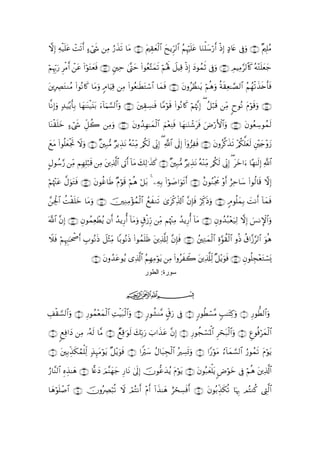 مُّلِيمٌ ۝ وَفِي عَادٍ إِذْ أَرْسَلْنَا عَلَيْهِمُ الرِّيحَ الْعَقِيمَ ۝ مَا تَذَرُ مِن شَيْءٍ أَتَتْ عَلَيْهِ إِلَّا
جَعَلَتْهُ كَالرَّمِيمِ ۝ وَفِي ثَمُودَ إِذْ قِيلَ لَهُمْ تَمَتَّعُوا حَتَّىٰ حِينٍ ۝ فَعَتَوْا عَنْ أَمْرِ رَبِّهِمْ
فَأَخَذَتْهُمُ الصَّاعِقَةُ وَهُمْ يَنظُرُونَ ۝ فَمَا اسْتَطَاعُوا مِن قِيَامٍ وَمَا كَانُوا مُنتَصِرِينَ
۝ وَقَوْمَ نُوحٍ مِّن قَبْلُ ۖ إِنَّهُمْ كَانُوا قَوْمًا فَاسِقِينَ ۝ وَالسَّمَاءَ بَنَيْنَاهَا بِأَيْيدٍ وَإِنَّا
لَمُوسِعُونَ ۝ وَالْأَرْضَ فَرَشْنَاهَا فَنِعْمَ الْمَاهِدُونَ ۝ وَمِن كُلِّ شَيْءٍ خَلَقْنَا
زَوْجَيْنِ لَعَلَّكُمْ تَذَكَّرُونَ ۝ فَفِرُّوا إِلَى اللَّهِ ۖ إِنِّي لَكُم مِّنْهُ نَذِيرٌ مُّبِينٌ ۝ وَلَا تَجْعَلُوا مَعَ
اللَّهِ إِلَٰهًا آخَرَ ۖ إِنِّي لَكُم مِّنْهُ نَذِيرٌ مُّبِينٌ ۝ كَذَٰلِكَ مَا أَتَى الَّذِينَ مِن قَبْلِهِم مِّن رَّسُولٍ
إِلَّا قَالُوا سَاحِرٌ أَوْ مَجْنُونٌ ۝ أَتَوَاصَوْا بِهِ ۚ بَلْ هُمْ قَوْمٌ طَاغُونَ ۝ فَتَوَلَّ عَنْهُمْ
فَمَا أَنتَ بِمَلُومٍ ۝ وَذَكِّرْ فَإِنَّ الذِّكْرَىٰ تَنفَعُ الْمُؤْمِنِينَ ۝ وَمَا خَلَقْتُ الْجِنَّ
وَالْإِنسَ إِلَّا لِيَعْبُدُونِ ۝ مَا أُرِيدُ مِنْهُم مِّن رِّزْقٍ وَمَا أُرِيدُ أَن يُطْعِمُونِ ۝ إِنَّ اللَّهَ
هُوَ الرَّزَّاقُ ذُو الْقُوَّةِ الْمَتِينُ ۝ فَإِنَّ لِلَّذِينَ ظَلَمُوا ذَنُوبًا مِّثْلَ ذَنُوبِ أَصْحَابِهِمْ فَلَا
يَسْتَعْجِلُونِ ۝ فَوَيْلٌ لِّلَّذِينَ كَفَرُوا مِن يَوْمِهِمُ الَّذِي يُوعَدُونَ ۝
سورة: الطور
بسم الله الرحمن الرحيم
وَالطُّورِ ۝ وَكِتَابٍ مَّسْطُورٍ ۝ فِي رَقٍّ مَّنشُورٍ ۝ وَالْبَيْتِ الْمَعْمُورِ ۝ وَالسَّقْفِ
الْمَرْفُوعِ ۝ وَالْبَحْرِ الْمَسْجُورِ ۝ إِنَّ عَذَابَ رَبِّكَ لَوَاقِعٌ ۝ مَّا لَهُ مِن دَافِعٍ ۝
يَوْمَ تَمُورُ السَّمَاءُ مَوْرًا ۝ وَتَسِيرُ الْجِبَالُ سَيْرًا ۝ فَوَيْلٌ يَوْمَئِذٍ لِّلْمُكَذِّبِينَ ۝
الَّذِينَ هُمْ فِي خَوْضٍ يَلْعَبُونَ ۝ يَوْمَ يُدَعُّونَ إِلَىٰ نَارِ جَهَنَّمَ دَعًّا ۝ هَٰذِهِ النَّارُ
الَّتِي كُنتُم بِهَا تُكَذِّبُونَ ۝ أَفَسِحْرٌ هَٰذَا أَمْ أَنتُمْ لَا تُبْصِرُونَ ۝ اصْلَوْهَا